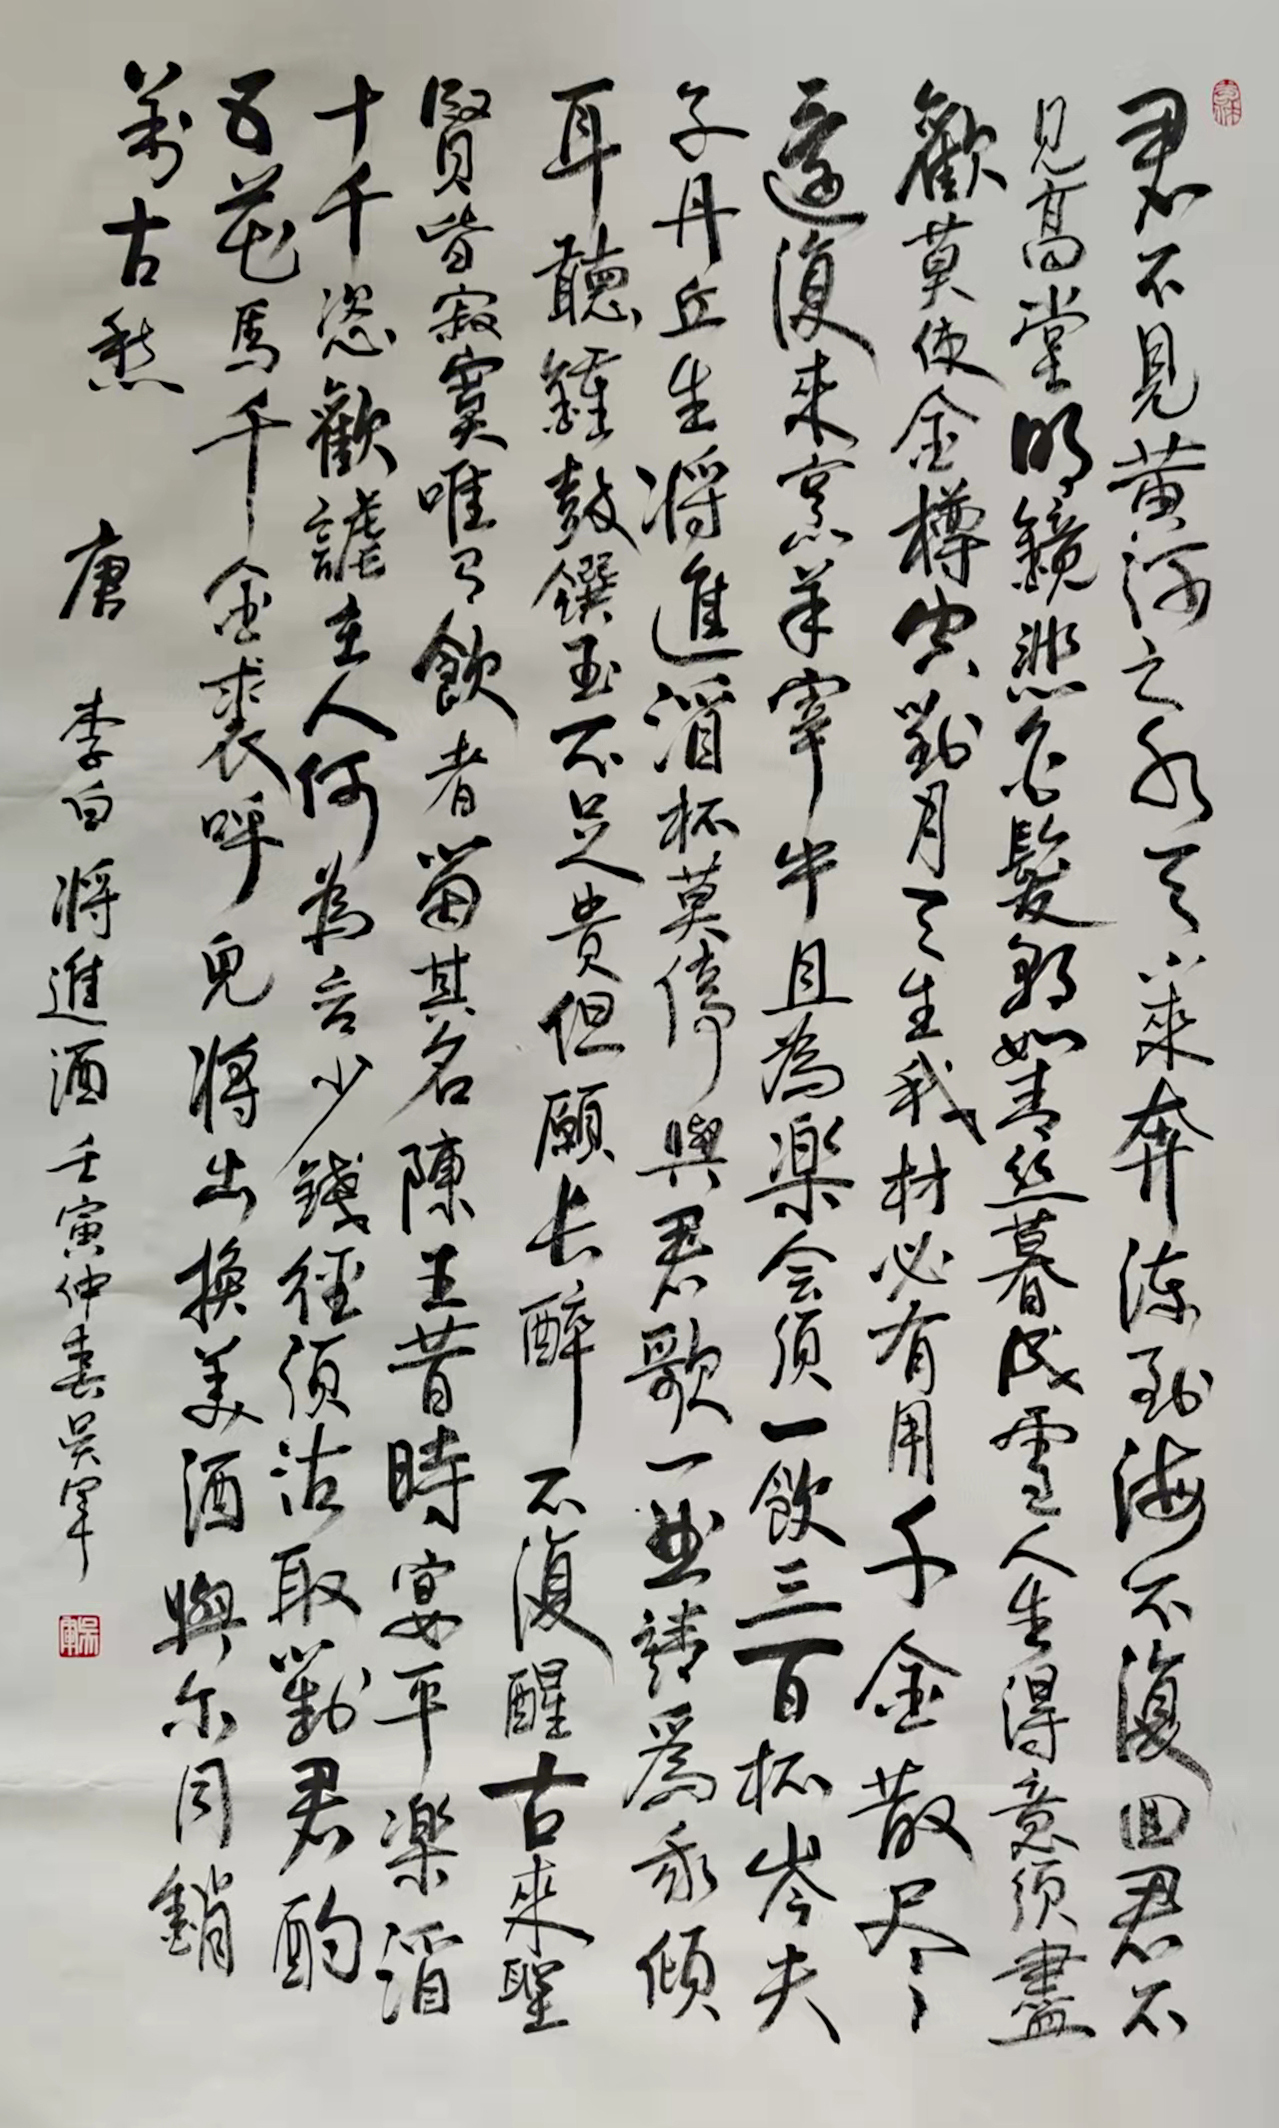 君不見黄河之水天上來奔流到海不復回君不
見高堂明鏡悲白髮朝如青丝暮成雪人生得意须盡
歡莫使金樽空對月天生我材必有用千金散尽
還復来烹羊宰牛且為楽会须一飲三百杯岑夫
子丹丘生將進酒杯莫停與君歌一曲請爲我傾
耳聽鐘鼓饌玉不足貴但願长醉不復醒古来聖
賢皆寂寞唯有飲者留其名陳王昔時宴平楽酒
十千恣歡謔主人何為言少錢径须沽取對君酌
五花馬千金裘呼兒将出换美酒與尔同銷
萬古愁
唐 李白将進酒壬寅仲春吴军
吴軍